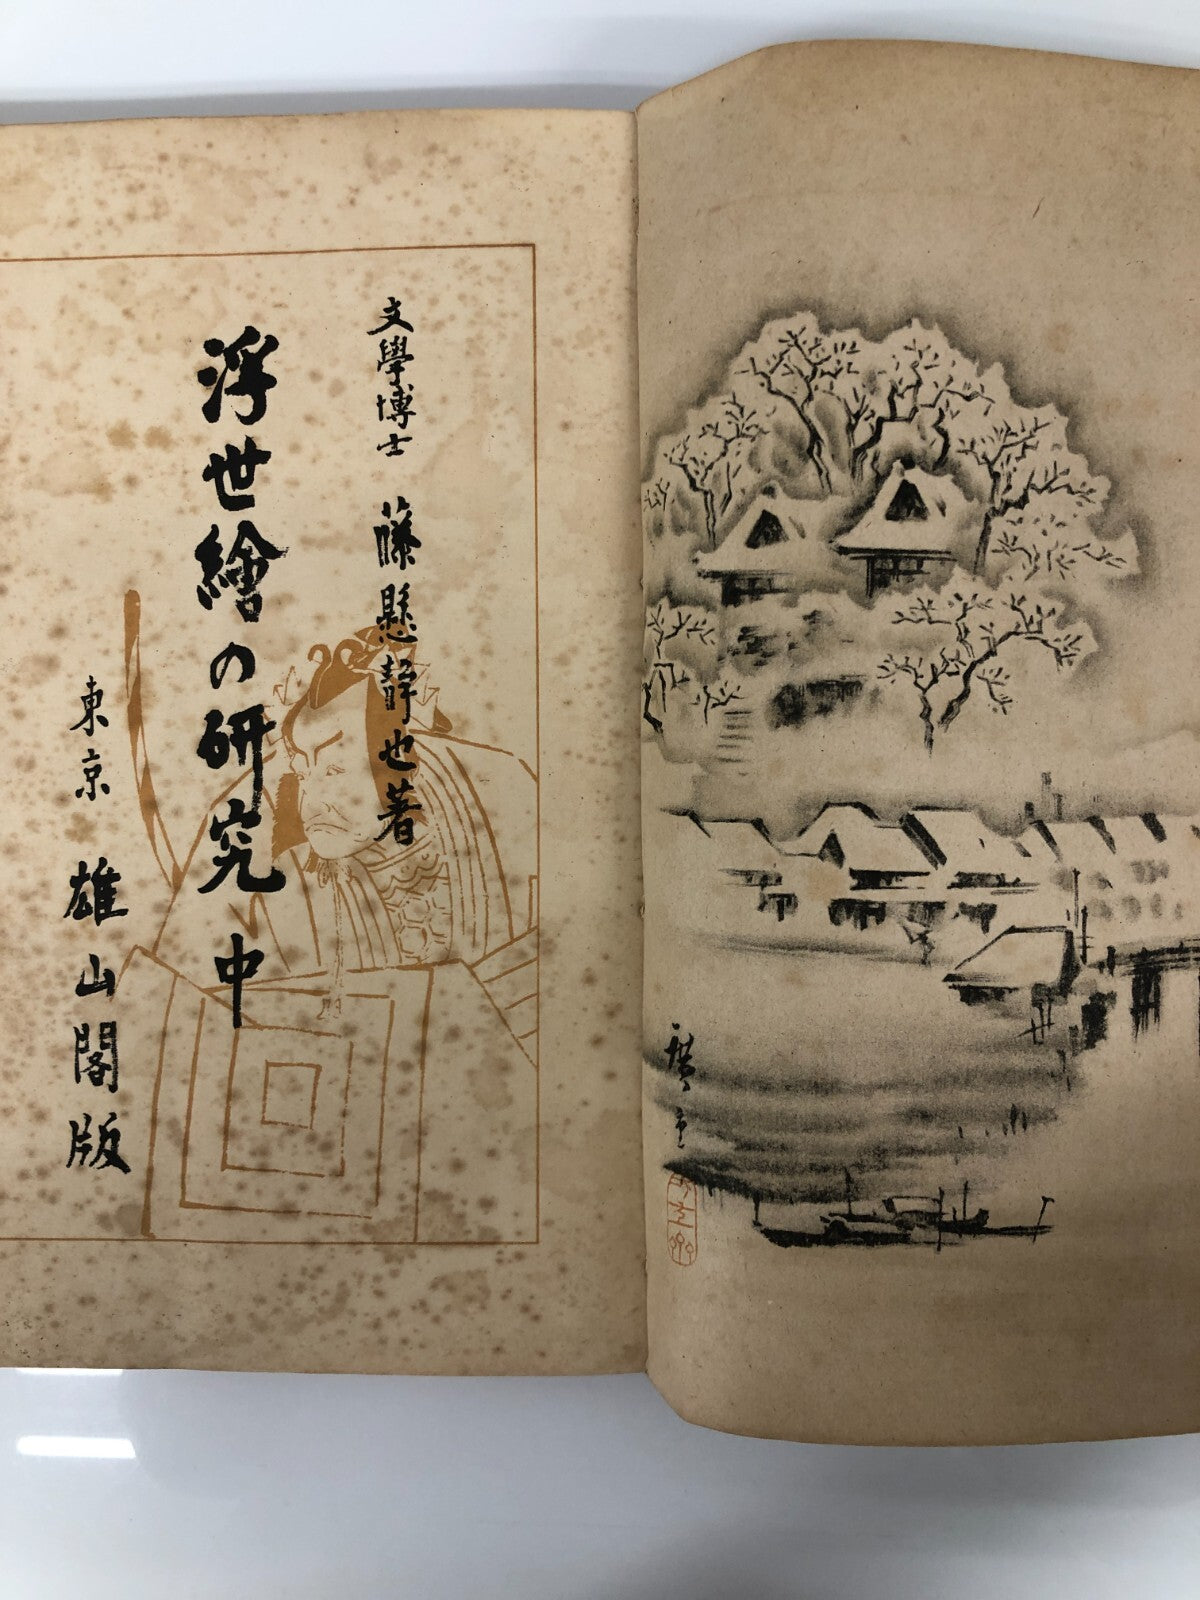 文學博士 藤懸靜也著
浮世繪の研究 中
東京 雄山閣版
廣重